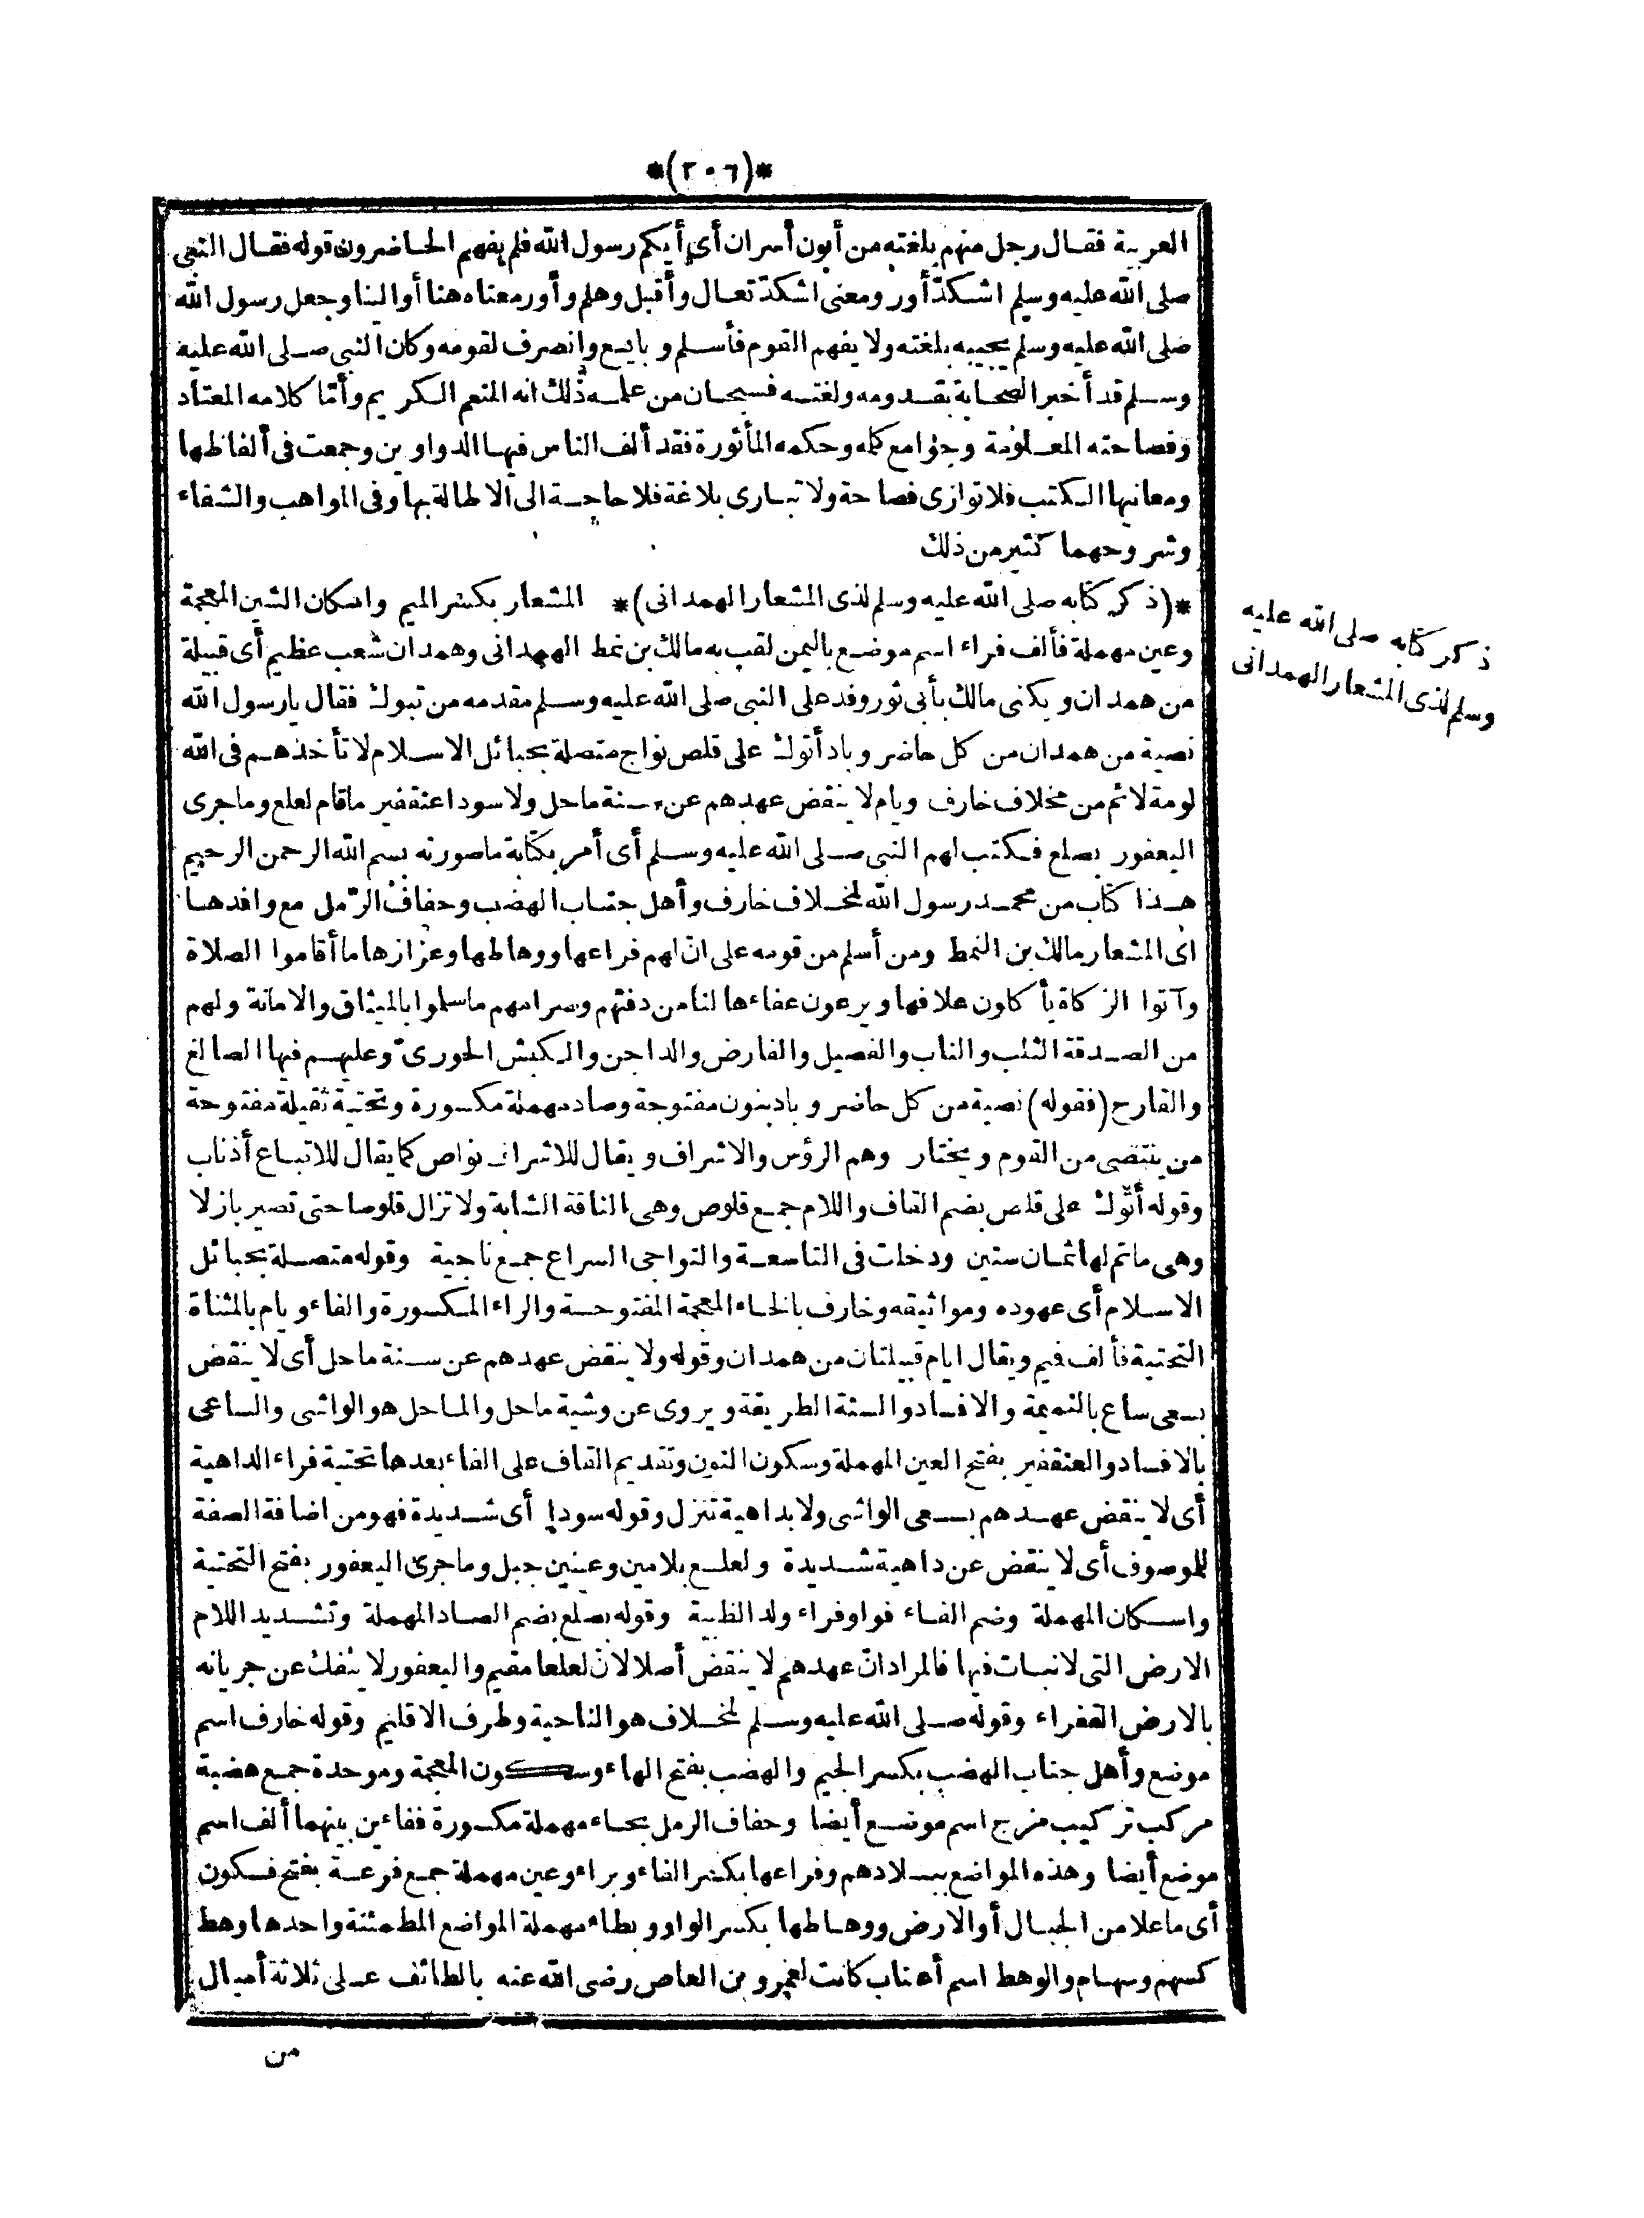 *(٢٠٦)*
العربية فقال رجل منهم بلغته من أبون أسران أى أيكم رسول الله فلم يفهم الحاضرون قوله فقال النبى
صلى الله عليه وسلم اشكدّ أور ومعنى اشكدّ تعال وأقبل وهلم وأور معناه هنا أو الينا وجعل رسول الله
صلى الله عليه وسلم يجيبه بلغته ولا يفهم القوم فأسلم وبايع وانصرف لقومه وكان النبى صلى الله عليه
وسلم قد أخبر الصحابة بقدومه ولغته فسبحان من علمه ذلك انه المنعم الكريم وأمّا كلامه المعتاد
وفصاحته المعلومة وجوامع كلمه وحكمه المأثورة فقد ألف الناس فيها الدواوين وجمعت فى ألفاظها
ومعانيها الكتب فلا توازى فصاحة ولا تبارى بلاغة فلا حاجة الى الاطالة بها وفى المواهب والشفاء
وشروحهما كثير من ذلك
*(ذكر كتابه صلى الله عليه وسلم لذى المشعار الهمدانى)* المشعار بكسر الميم واسكان الشين المعجمة
وعين مهملة فألف فراء اسم موضع باليمن لقب به مالك بن نمط الهمدانى وهمدان شعب عظيم أى قبيلة
من همدان ويكنى مالك بأبى ثور وفد على النبى صلى الله عليه وسلم مقدمه من تبوك فقال يا رسول الله
نصية من همدان من كل حاضر وباد أتوك على قلص نواج متصلة بحبائل الاسلام لا تأخذهم فى الله
لومة لائم من مخلاف خارف ويام لا ينقض عهدهم عن سنة ماحل ولا سودا عنقفير ما قام لعلع وما جرى
اليعفور بصلع فكتب لهم النبى صلى الله عليه وسلم أى أمر بكتابة ما صورته بسم الله الرحمن الرحيم
هذا كتاب من محمد رسول الله لمخلاف خارف وأهل جناب الهضب وحفاف الرّمل مع وافدها
اى المشعار مالك بن النمط ومن أسلم من قومه على انّ لهم فراعها ووهاطها وعزازها ما أقاموا الصلاة
وآتوا الزكاة يأكلون علافها ويرعون عفاءها لنا من دفئهم وصرامهم ما سلموا بالميثاق والامانة ولهم
من الصدقة الثلب والناب والفصيل والفارض والداجن والكبش الحورىّ وعليهم فيها الصالغ
والقارح (فقوله) نصية من كل حاضر وباد بنون مفتوحة وصاد مهملة مكسورة وتحتية ثقيلة مفتوحة
من ينتصى من القوم ويختار وهم الرؤس والاشراف ويقال للاشراف نواص كما يقال للاتباع أذناب
وقوله أتوك على قلص بضم القاف واللام جمع قلوص وهى الناقة الشابة ولا تزال قلوصا حتى تصير بازلا
وهى ماتم لها ثمان سنين ودخلت فى التاسعة والنواجى السراع جمع ناجية وقوله متصلة بحبائل
الاسلام أى عهوده ومواثيقه وخارف بالخاء المعجمة المفتوحة والراء المكسورة والفاء ويام بالمثناة
التحتية فألف فيم ويقال ايام قبيلتان من همدان وقوله ولا ينقض عهدهم عن سنة ماحل أى لا ينقض
بسعى ساع بالنميمة والافساد والسنة الطريقة ويروى عن وشية ماحل والماحل هو الواشى والساعى
بالافساد والعنقفير بفتح العين المهملة وسكون النون وتقديم القاف على الفاء بعدها تحتية فراء الداهية
أى لا ينقض عهدهم بسعى الواشى ولا بداهية تنزل وقوله سودا أى شديدة فهو من اضافة الصفة
للموصوف أى لا ينقض عن داهية شديدة ولعلع بلامين وعينين جبل وما جرى اليعفور بفتح التحتية
واسكان المهملة وضم الفاء فواو فراء ولد الظبية وقوله بصلع بضم الصاد المهملة وتشديد اللام
الارض التى لا نبات فيها فالمراد انّ عهدهم لا ينقض أصلا لانّ لعلعا مقيم واليعفور لا ينفك عن جريانه
بالارض القفراء وقوله صلى الله عليه وسلم لمخلاف هو الناحية وطرف الاقليم وقوله خارف اسم
موضع وأهل جناب الهضب بكسر الجيم والهضب بفتح الهاء وسكون المعجمة وموحدة جمع هضبة
مركب تركيب مزج اسم موضع أيضا وحفاف الرمل بحاء مهملة مكسورة ففاءين بينهما ألف اسم
موضع أيضا وهذه المواضع ببلادهم وفراعها بكسر الفاء وبراء وعين مهملة جمع فرعة بفتح فسكون
أى ما علا من الجبال أو الارض ووهاطها بكسر الواو وبطاء مهملة المواضع المطمئنة واحدها وهط
كسهم وسهام والوهط اسم أعناب كانت لعمرو بن العاص رضى الله عنه بالطائف على ثلاثة أميال
من
ذكر كتابه صلى الله عليه
وسلم لذى المشعار الهمدانى